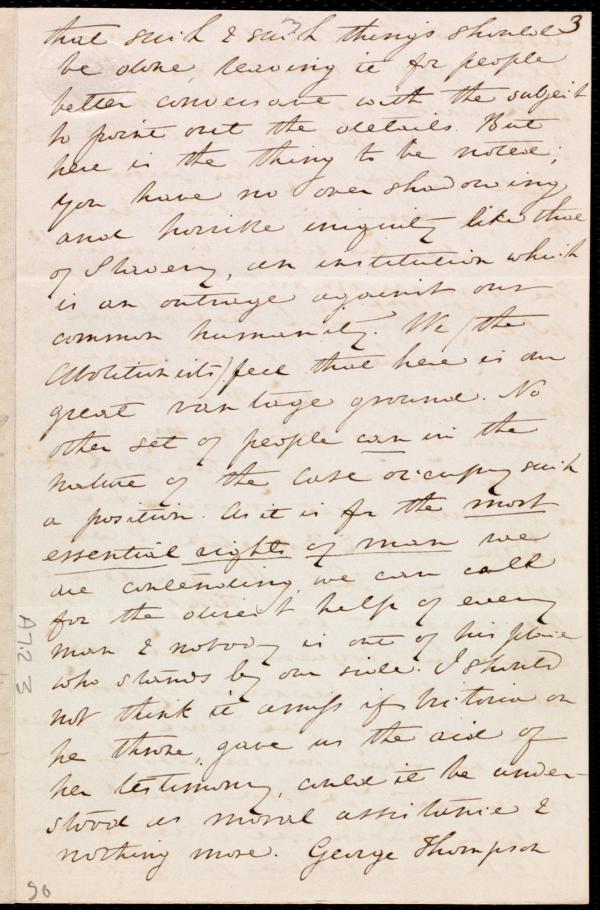 3
that such & such things should
be done, leaving it for people
better conversant with the subject
to point out the details. But
here is the thing to be noted;
you have no overshadowing
and horrible iniquity like that
of Slavery, an institution which
is an outrage against our
common humanity. We (the
Abolitionists) feel that here is our
great vantage ground. No
other set of people can in the
nature of the case occupy such
a position. As it is for the most
essential rights of man we
are contending, we can call
for the direct help of every
man & nobody is out of his place
who stands by our side. I should
not think it amiss if Victoria on
her throne, gave us the aid of
her testimony, could it be under-
stood as moral assistance &
nothing more. George Thompson
A7.2 3